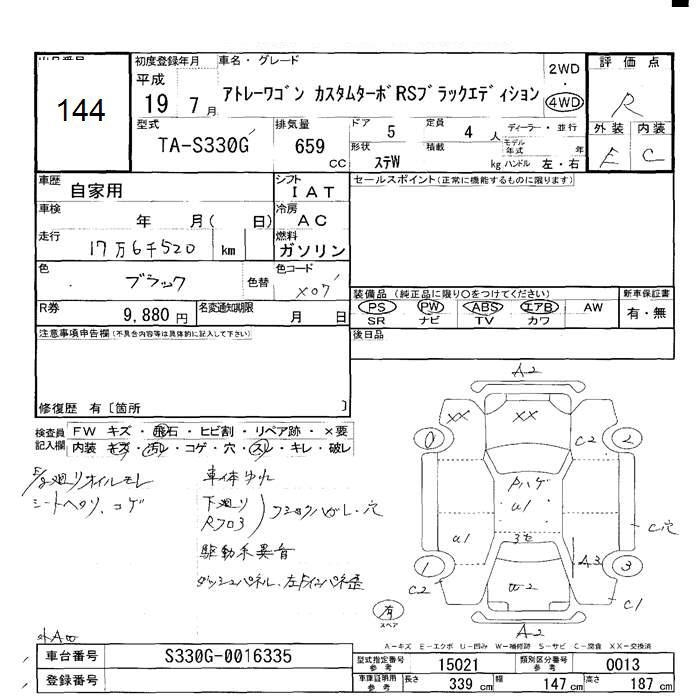 初度登録年月
車名・グレード
平成
19 7月
アトレーワゴン カスタムターボRSブラックエディション
2WD
4WD
評価点
R
144
型式
TA-S330G
排気量
659 CC
ドア 5
定員 4 人
形状 ステW
積載 kg
ディーラー・並行
モデル年式 年
ハンドル 左・右
外装 内装
E C
車歴 自家用
シフト IAT
セールスポイント(正常に機能するものに限ります)
車検 年 月( 日)
冷房 AC
走行 17万6千520 km
燃料 ガソリン
色 ブラック 色替
色コード X07
装備品(純正品に限り○をつけてください)
新車保証書
PS PW ABS エアB AW
有・無
SR ナビ TV カワ
R券 9,880円
名変通知期限 月 日
注意事項申告欄(不具合内容等は具体的に記入して下さい)
後日品
修復歴 有〔箇所 〕
検査員記入欄
FW キズ・飛石・ヒビ割・リペア跡・×要
内装 キズ・汚レ・コゲ・穴・スレ・キレ・破レ
シートヘタリ、コゲ
下廻り
駆動系異音
A2
XX XX
0 2
C2
U1
U1
C穴
A3
1 3
C2
W2
C1
A2
有
スペア
A-キズ E-エクボ U-凹み W-補修跡 S-サビ C-腐食 XX-交換済
車台番号 S330G-0016335
登録番号
型式指定番号参考 15021
類別区分番号参考 0013
車庫証明用参考 長さ 339 cm 幅 147 cm 高さ 187 cm